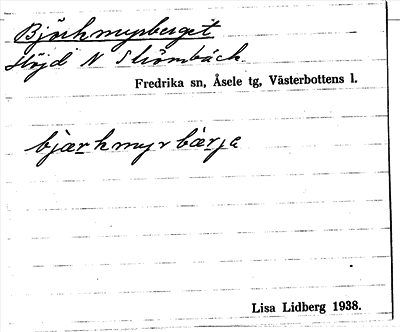 Björkmyrberget
Höjd N Strömbäck.
Fredrika sn, Åsele tg, Västerbottens l.
bjærkmyrbærja
Lisa Lidberg 1938.